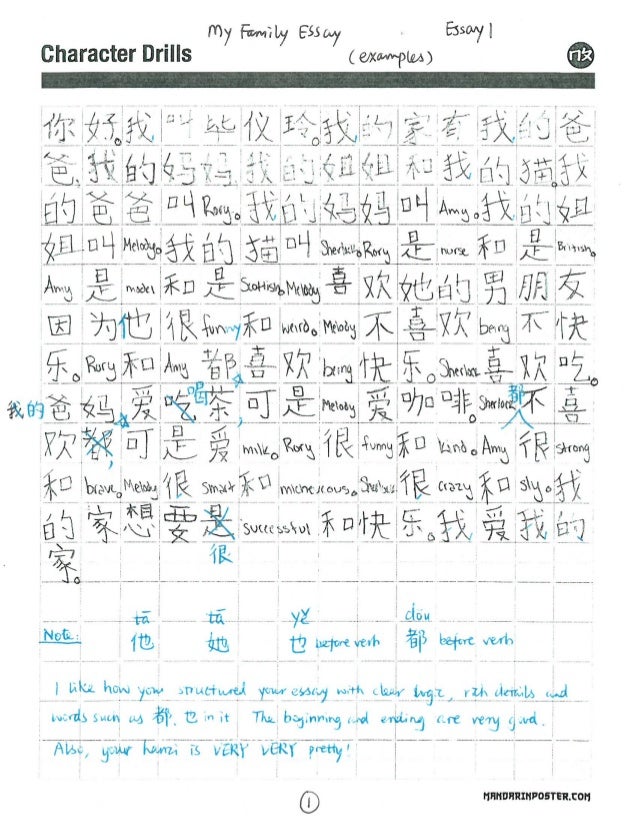 My Family Essay Essay 1
Character Drills (examples)
你好。我叫毕仪玲。我的家有我的爸
爸,我的妈妈,我的姐姐和我的猫。我
的爸爸叫Rory。我的妈妈叫Amy。我的姐
姐叫Melody。我的猫叫Sherlock。Rory是nurse和是British。
Amy是model和是Scottish。Melody喜欢她的男朋友
因为他很funny和weird。Melody不喜欢being不快
乐。Rory和Amy都喜欢being快乐。Sherlock喜欢吃。
我的爸妈爱吃喝茶,可是Melody爱咖啡。Sherlock都不喜
欢都,可是爱milk。Rory很funny和kind。Amy很strong
和brave。Melody很smart和micherous。Sherlock很crazy和sly。我
的家想要是successful和快乐。我爱我的
很
家。
tā tā yě dōu
Note: 他 她 也 before verb 都 before verb
I like how your structured your essay with clear logic, rich details and
words such as 都, 也 in it The beginning and ending are very good.
Also, your hanzi is VERY VERY pretty!
MANDARINPOSTER.COM
1